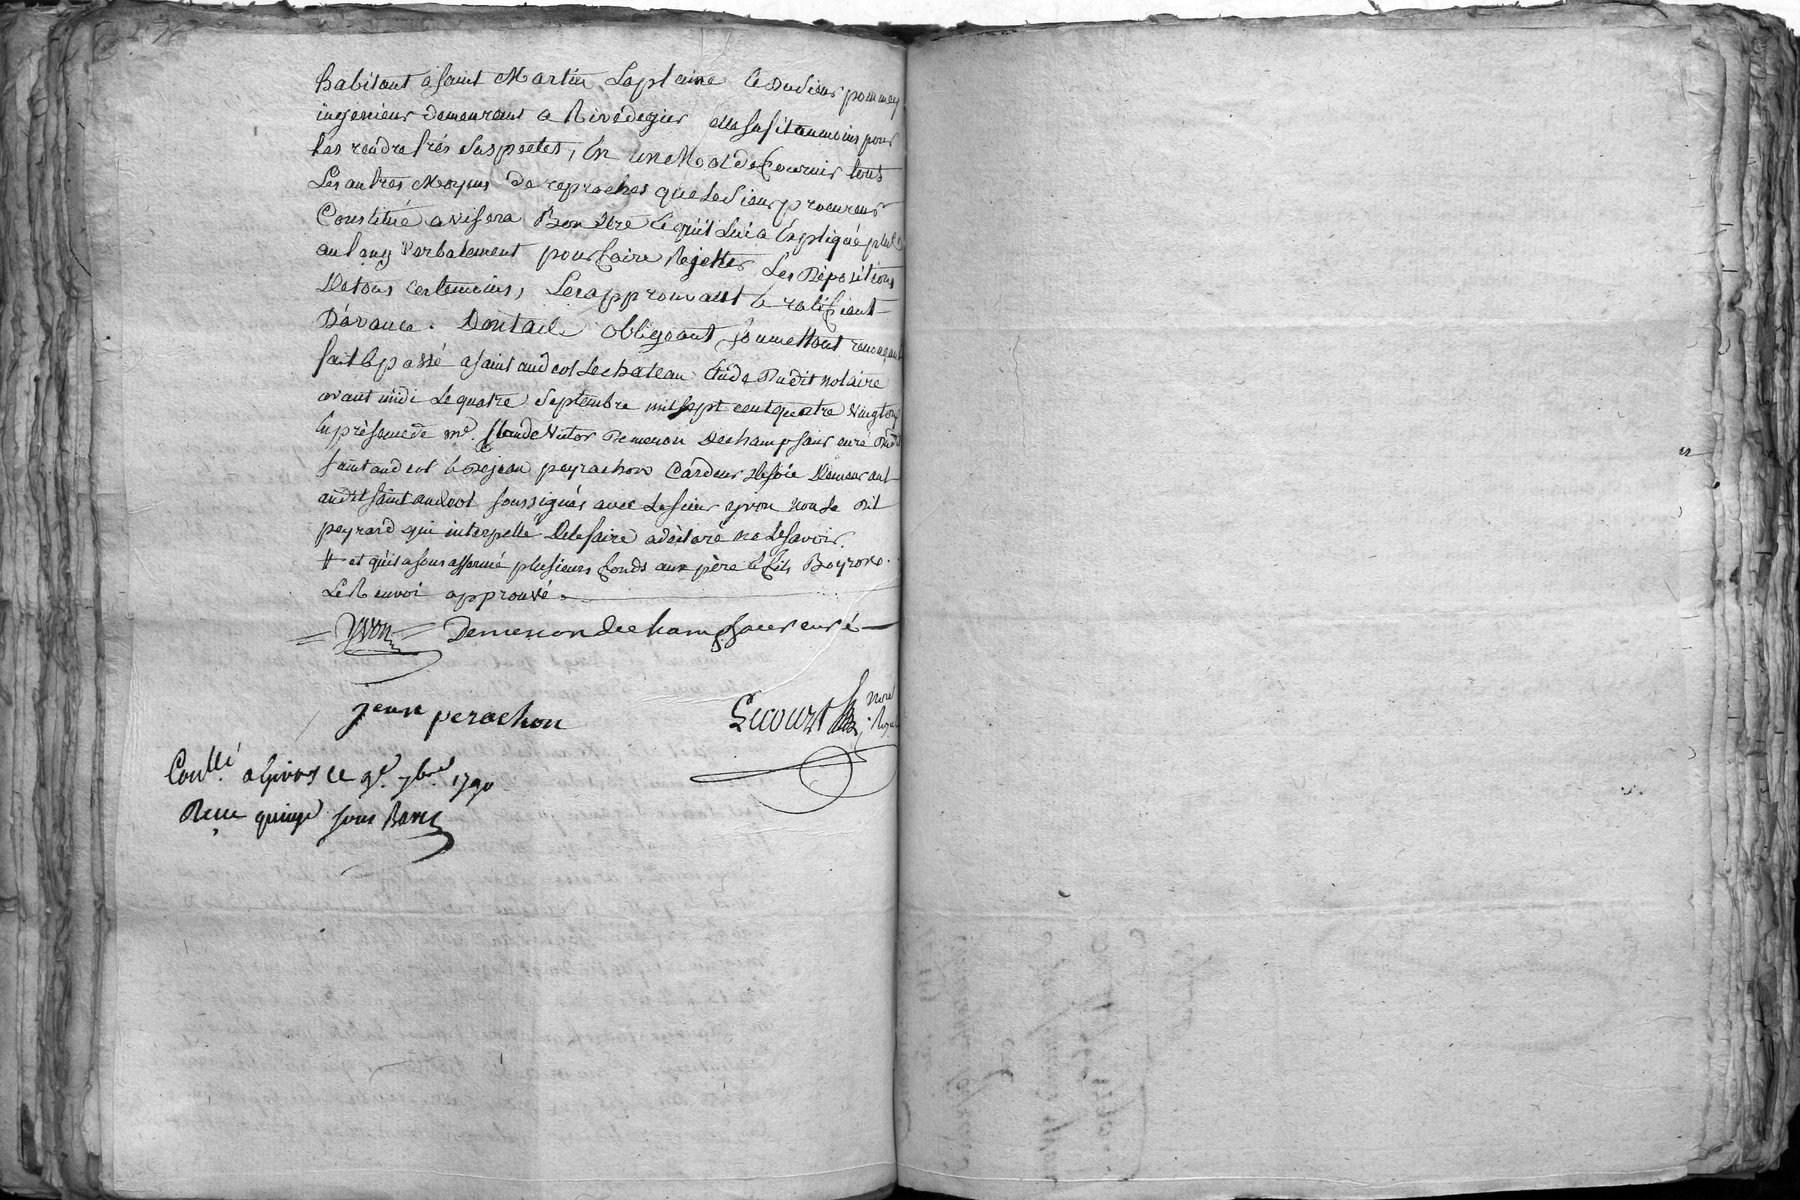 habitant a saint Martin Laplaine & Dudieus pommey
ingenieur demeurant a Rivedegier
les rendre trés suspectes, En un Mot de fournir tous
Les autres Moyens de reproches que Ledsieur procureur
Constitué avisera Bon être & qu'il lui a Expliqué plus
au long verbalement pour faire Rejetter Les Dépositions
De tous ces temoins, Les approuvant & ratifiant
D'avance. Dont acte obligeant, soumettant renonçant
fait & passé a saint andeol Le chateau Etude Dudit notaire
avant midi Le quatre septembre mil sept cent quatre vingt
En présence de mre. Claude Victor Demenon Dechampsaur curé dudit
saint andeol & de jean peyrachon Cardeur de soie Demeurant
audit saint andeol soussignés avec Le sieur yvon non Le dit
peyrard qui interpellé De le faire a déclaré ne Le savoir.
# et qu'il a sous affermé plusieurs fonds aux père & fils Boyron.
Le Renvoi approuvé.
yvon Demenon dechampsaur curé
jean perachon
Lecourt nore Royal
Conllé. a Givors le 9e. 7bre 1790
Recu quinze sous